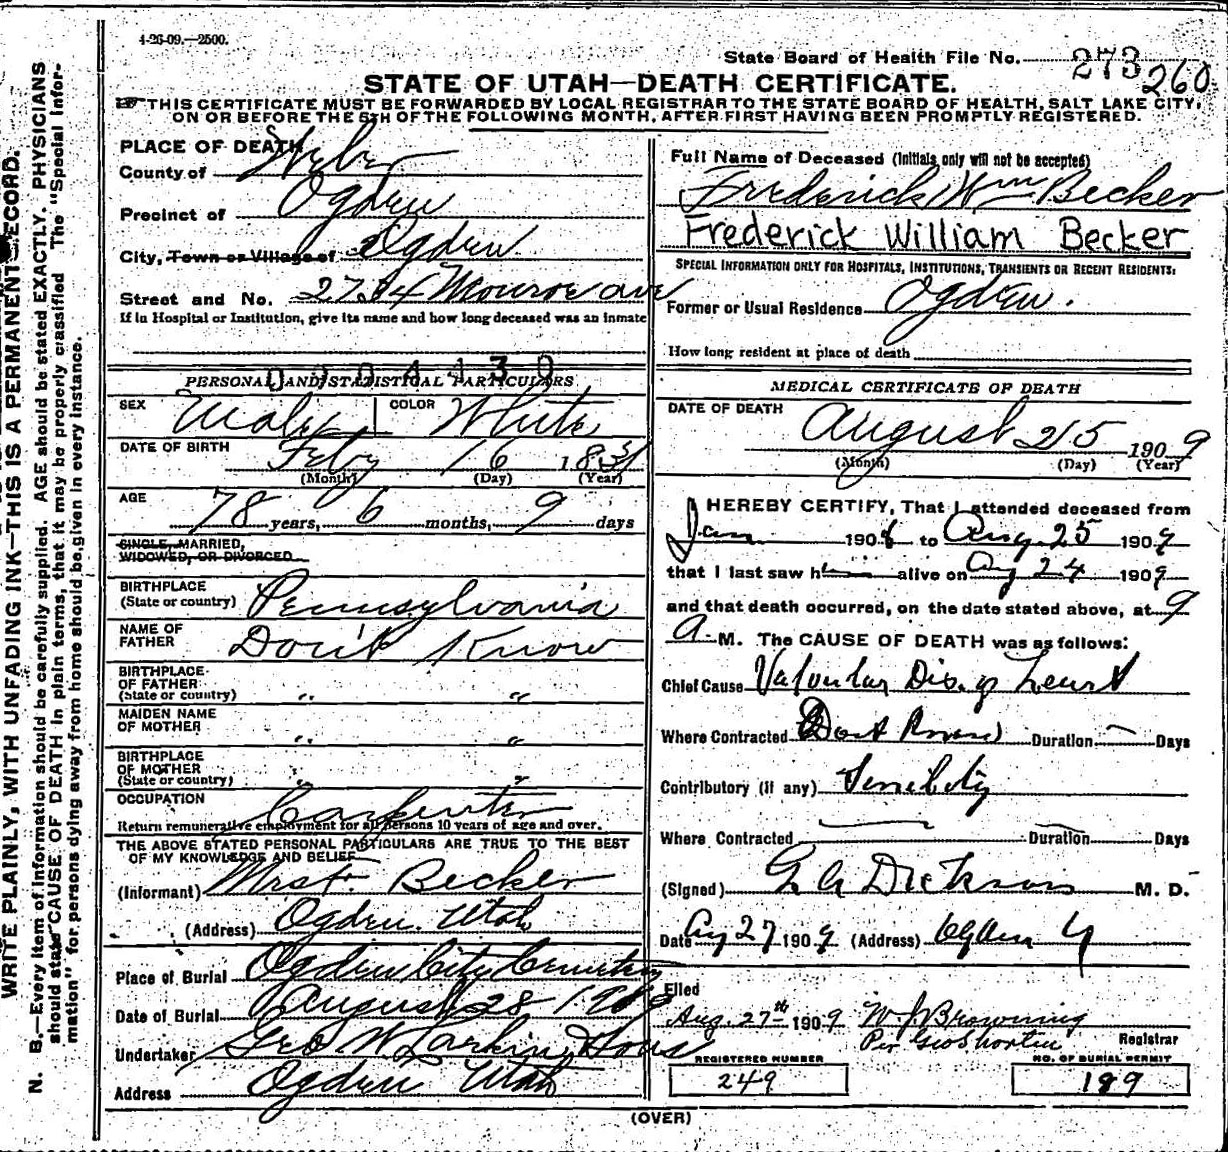 4-26-09.—2500.
State Board of Health File No. 273 260
STATE OF UTAH—DEATH CERTIFICATE.
THIS CERTIFICATE MUST BE FORWARDED BY LOCAL REGISTRAR TO THE STATE BOARD OF HEALTH, SALT LAKE CITY,
ON OR BEFORE THE 5TH OF THE FOLLOWING MONTH, AFTER FIRST HAVING BEEN PROMPTLY REGISTERED.
WRITE PLAINLY, WITH UNFADING INK—THIS IS A PERMANENT RECORD.
N. B.—Every item of information should be carefully supplied. AGE should be stated EXACTLY. PHYSICIANS
should state CAUSE OF DEATH in plain terms, that it may be properly classified. The "Special Infor-
mation" for persons dying away from home should be given in every instance.
PLACE OF DEATH
County of Weber
Precinct of Ogden
City, Town or Village of Ogden
Street and No. 2734 Monroe ave
If in Hospital or Institution, give its name and how long deceased was an inmate
PERSONAL AND STATISTICAL PARTICULARS
SEX Male COLOR White
DATE OF BIRTH Feby 16 1831
(Month) (Day) (Year)
AGE
78 years, 6 months, 9 days
SINGLE, MARRIED,
WIDOWED, OR DIVORCED
BIRTHPLACE
(State or country) Pennsylvania
NAME OF
FATHER Don't Know
BIRTHPLACE
OF FATHER
(State or country) " "
MAIDEN NAME
OF MOTHER " "
BIRTHPLACE
OF MOTHER
(State or country) " "
OCCUPATION Carpenter
Return remunerative employment for all persons 10 years of age and over.
THE ABOVE STATED PERSONAL PARTICULARS ARE TRUE TO THE BEST
OF MY KNOWLEDGE AND BELIEF
(Informant) Mrs F. Becker
(Address) Ogden. Utah
Place of Burial Ogden City Cemetery
Date of Burial August 28 1909
Undertaker Geo W. Larkin & Sons
Address Ogden Utah
Full Name of Deceased (Initials only will not be accepted)
Frederick Wm Becker
Frederick William Becker
SPECIAL INFORMATION ONLY FOR HOSPITALS, INSTITUTIONS, TRANSIENTS OR RECENT RESIDENTS:
Former or Usual Residence Ogden.
How long resident at place of death
MEDICAL CERTIFICATE OF DEATH
DATE OF DEATH
August 25 1909
(Month) (Day) (Year)
I HEREBY CERTIFY, That I attended deceased from
Jan 1908 to Aug. 25 1909
that I last saw him alive on Aug 24 1909
and that death occurred, on the date stated above, at 9
A. M. The CAUSE OF DEATH was as follows:
Chief Cause Valvular Dis. of heart
Where Contracted Dont Know Duration — Days
Contributory (if any) Senility
Where Contracted Duration Days
(Signed) G. A Dickson M. D.
Date Aug 27 1909 (Address) Ogden U
Filed
Aug. 27th 1909 W. J Browning
Per Geo Shorten Registrar
REGISTERED NUMBER
249
NO. OF BURIAL PERMIT
189
(OVER)